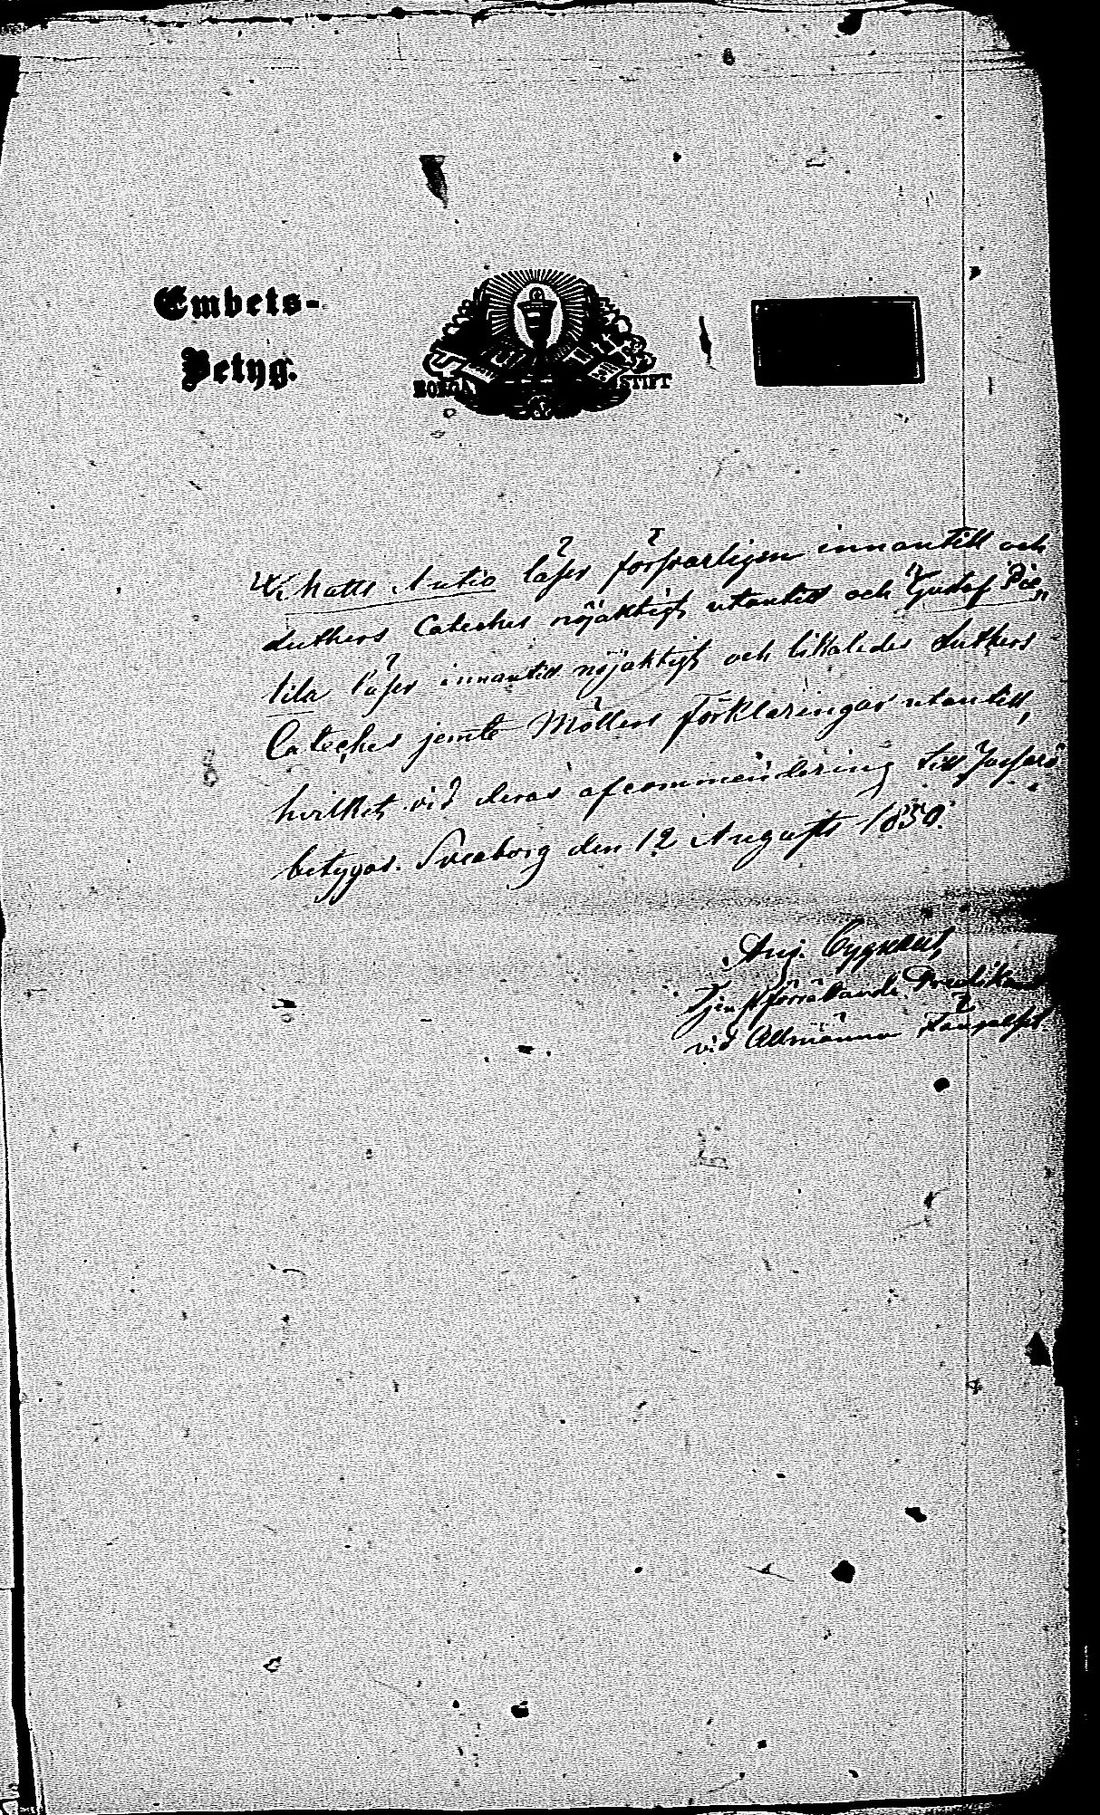 Embets-
Betyg.
BORGÅ STIFT
Matts Autio läser försvarligen innantill och
Luthers Cateches nöjaktigt utantill och Gustaf Pie,,
tila läser innantill nöjaktigt och likaledes Luthers
Cateches jemte Möllers förklaringar utantill,
hvilket vid deras afcommendering till
betygas. Sveaborg den 12 Augusti 1850.
Aug. Cygnaeus,
Tjenstförrättande Predikant
vid Allmänna